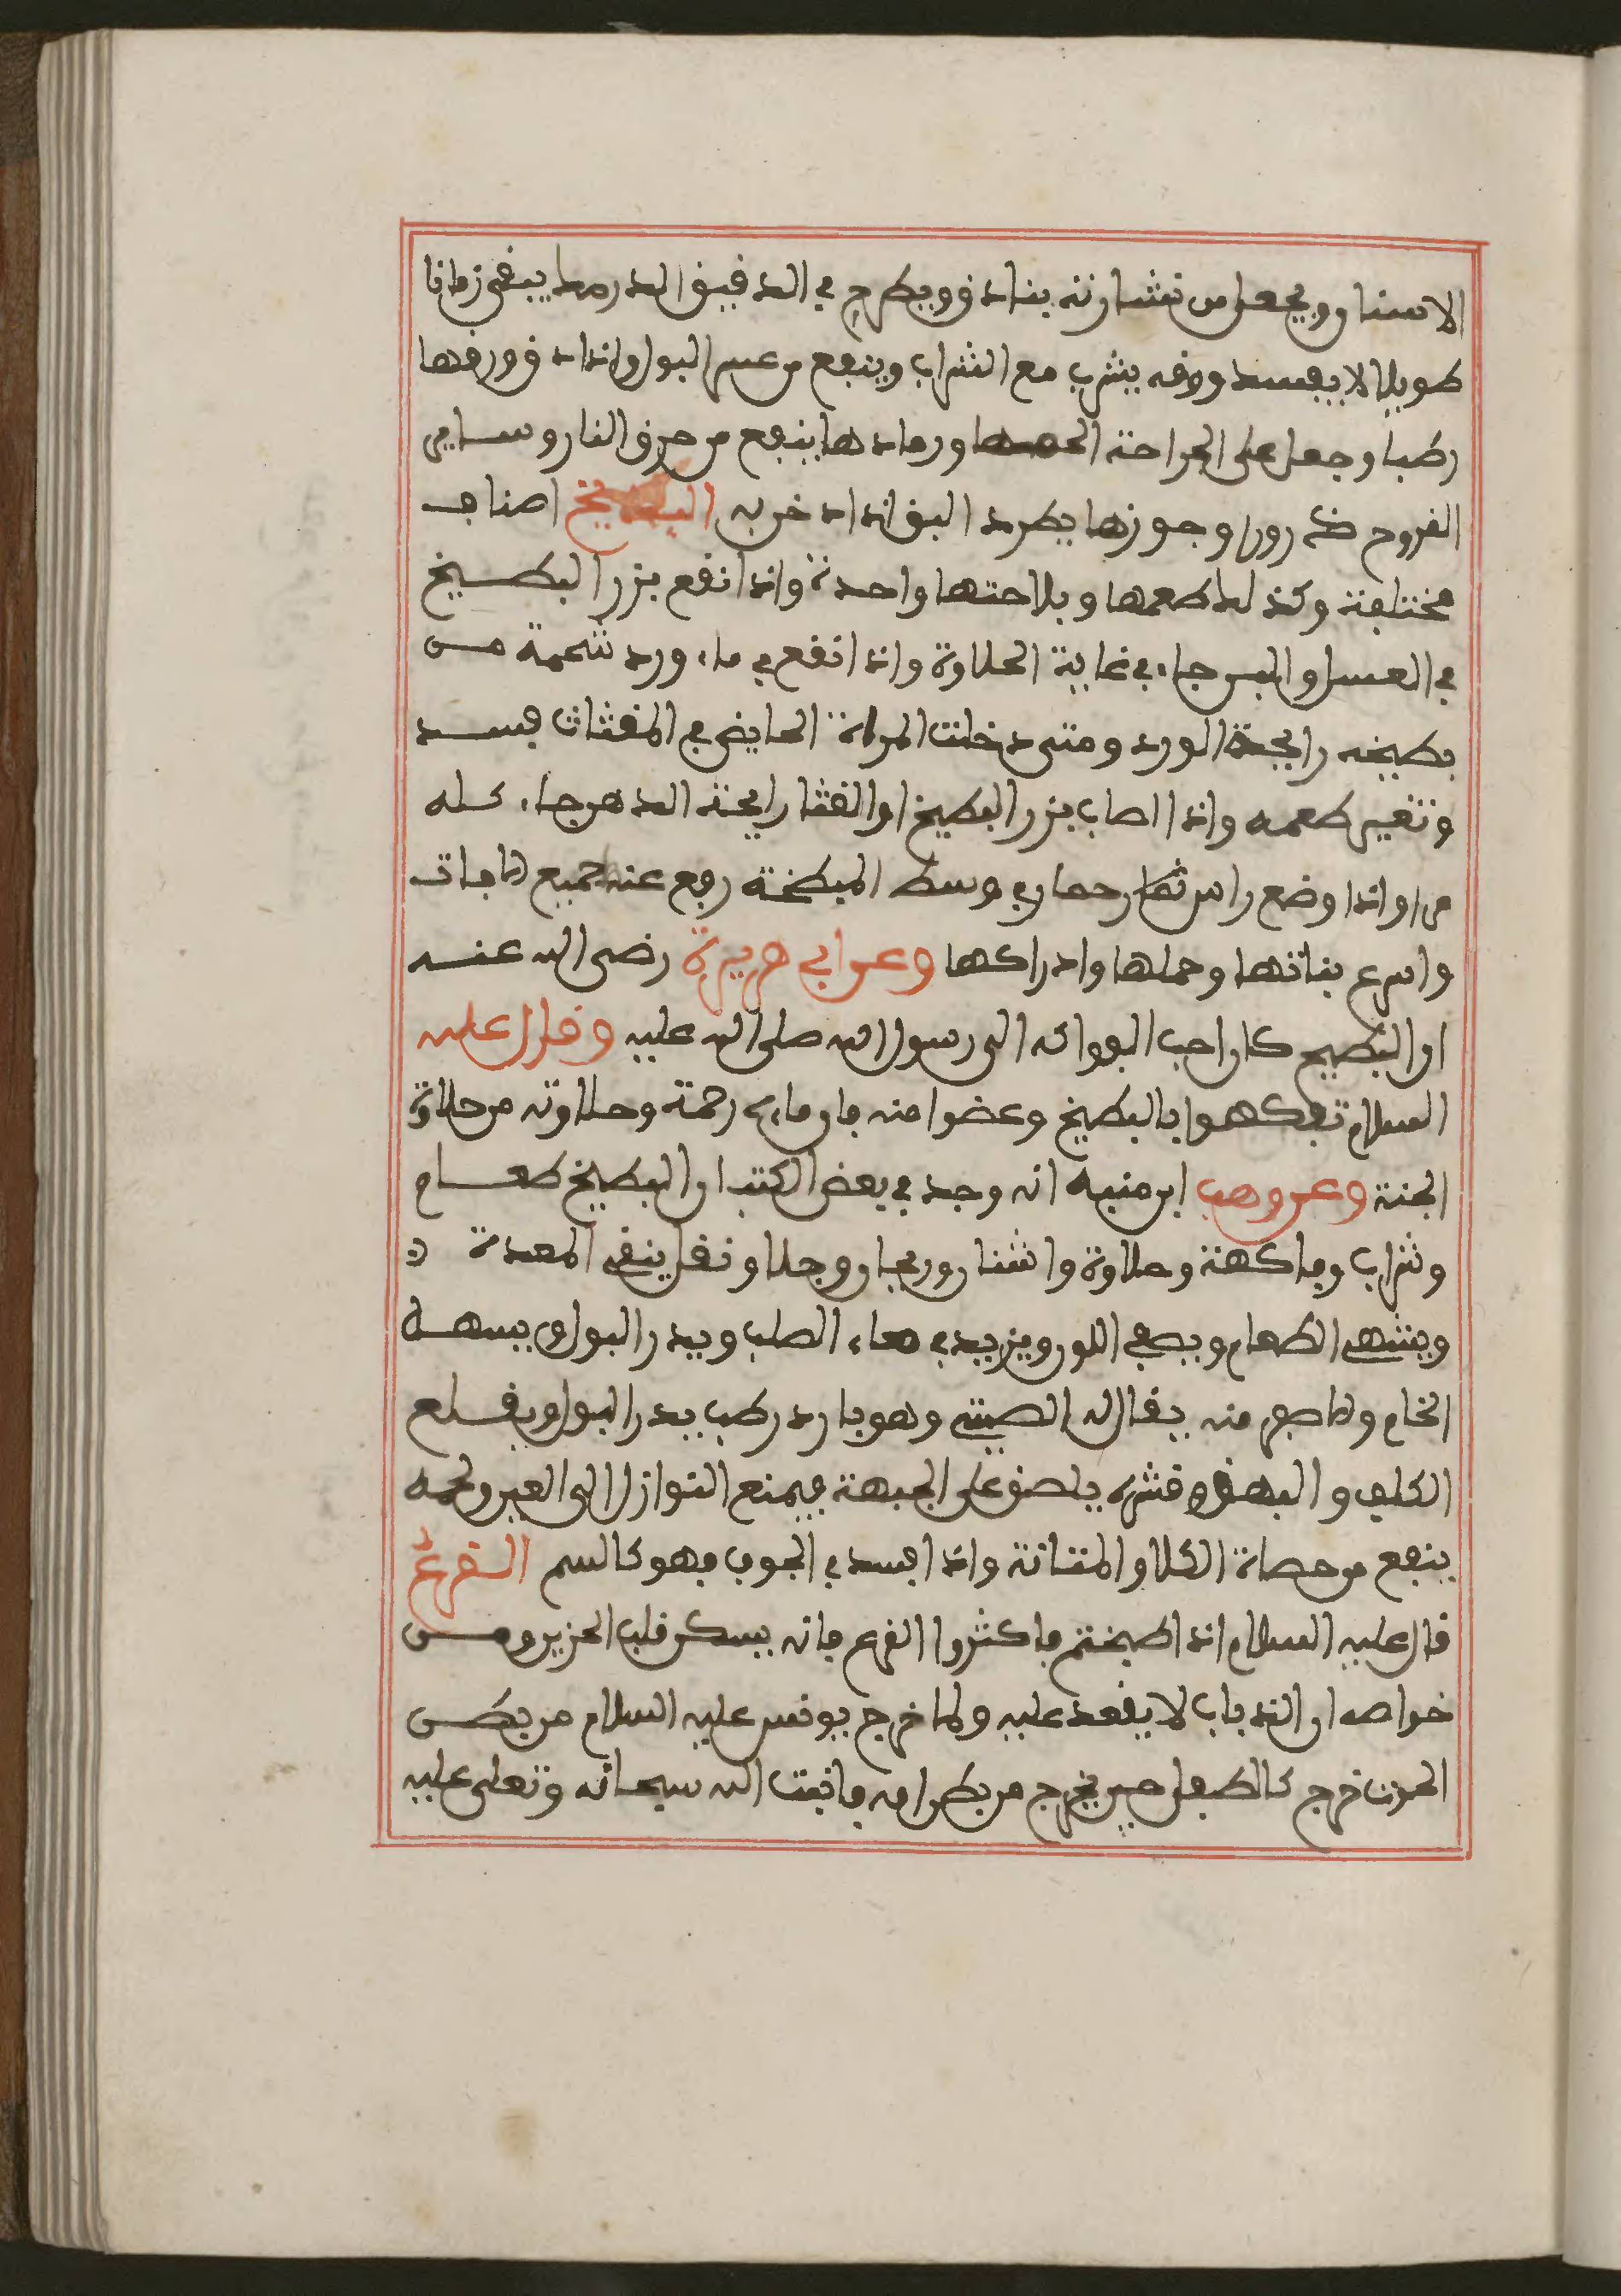 الاسنان ويجعل من نشارته بنادق ويطرح في الدقيق الدرمك يبقى زمانا
طويلا لا يفسد وورقه يشرب مع الشراب وينفع من عسر البول واذا دق ورقها
رطبا وجعل على الجراحة الحمها ورمادها ينفع من حرق النار وساير
القروح ذرورا وجوزها يطرد البق اذا دخن به البطيخ اصناف
مختلفة وكذلك طعمها وفلاحتها واحدة واذا انقع بزر البطيخ
في العسل والبس جاء في غاية الحلاوة واذا انقع في ماء ورد شممة من
بطيخه رايحة الورد ومتى دخلت المراة الحايض في المقثات فسد
وتغير طعمه واذا اصاب بزر البطيخ او القثا رايحة الدهن جاء كله
مرا واذا وضع راس حمار في وسط المبطخة رفع عنه جميع الافات
واسرع بنباتها وحملها وادراكها وعن ابي هريرة رضى الله عنه
ان البطيخ كان احب الفواكه الى رسول الله صلى الله عليه وقال عليه
السلام تفكهوا بالبطيخ وعضوا منه فان ماءه رحمة وحلاوته من حلاوة
الجنة وعن وهب ابن منبه انه وجد في بعض الكتب ان البطيخ طعام
وشراب وفاكهة وحلاوة واشنان وريحان وجلا ونقل ينقي المعدة
ويشهي الطعام ويصفي اللون ويزيد في ماء الصلب ويدر البول ويسهل
الخام والاصفر منه يقال له الصيني وهو بارد رطب يدر البول ويقلع
الكلف والبهق وقشره يلصق على الجبهة فيمنع النوازل الى العين ولحمه
ينفع من حصاة الكلا والمثانة واذا فسد في الجوف فهو كالسم القرع
قال عليه السلام اذا طبختم فاكثروا القرع فانه يسكن قلب الحزين ومن
خواصه ان الذباب لا يقعد عليه ولما خرج يونس عليه السلام من بطن
الحوت خرج كالطفل حين يخرج من بطن امه فانبت الله سبحانه وتعلى عليه